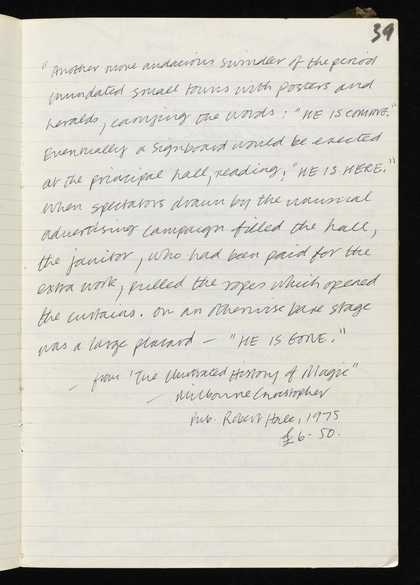 39
"Another more audacious swindler of the period
inundated small towns with posters and
heralds, carrying the words: "HE IS COMING."
Eventually a signboard would be erected
at the principal hall, reading, "HE IS HERE."
When spectators drawn by the unusual
advertising campaign filled the hall,
the janitor, who had been paid for the
extra work, pulled the ropes which opened
the curtains. On an otherwise bare stage
was a large placard — "HE IS GONE."
— from 'The Illustrated History of Magic"
— Milbourne Christopher
Pub. Robert Hale, 1975
£6-50.